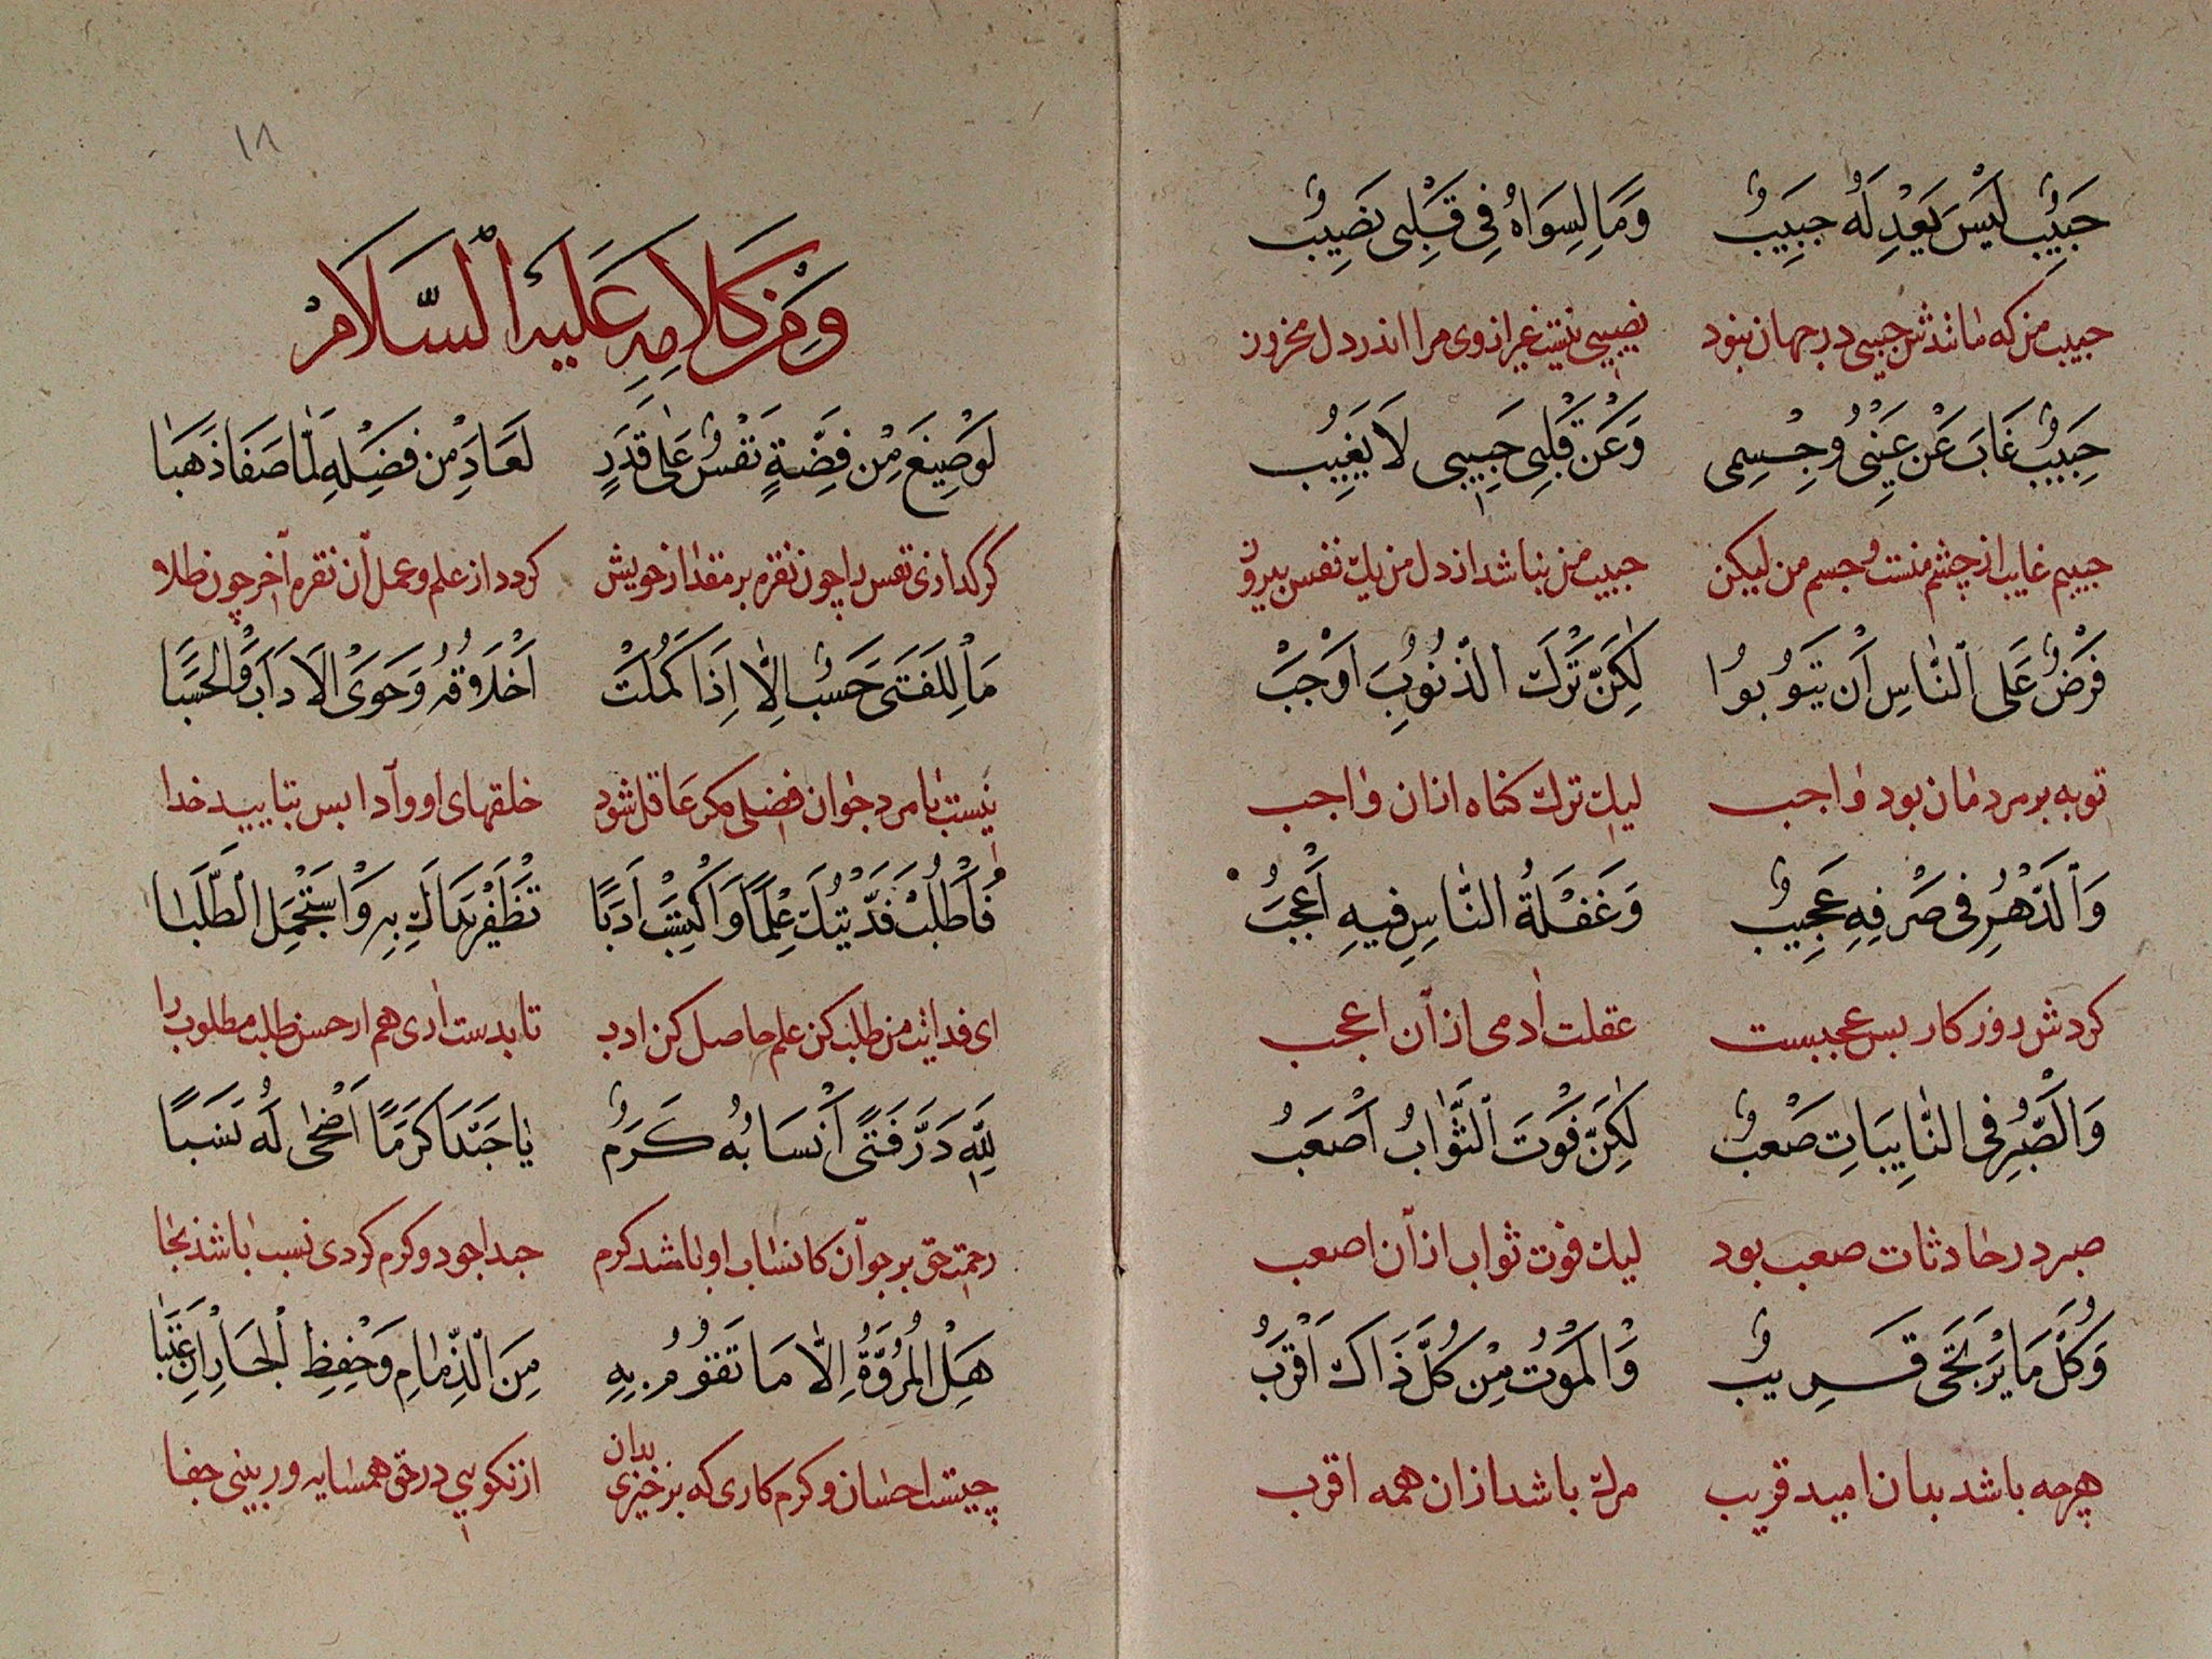 حَبِيبٌ لَيْسَ يَعْدِلُهُ حَبِيبٌ وَمَا لِسِوَاهُ فِي قَلْبِي نَصِيبٌ
حبیب من که مانندش حبیبی در جهان نبود نصیبی نیست غیر از وی مرا اندر دل محزون
حَبِيبٌ غَابَ عَنْ عَيْنِي وَجِسْمِي وَعَنْ قَلْبِي حَبِيبِي لَا يَغِيبُ
حبیبم غایب از چشم منست و جسم من لیکن حبیب من نباشد از دل من یک نفس بیرون
فَرْضٌ عَلَى النَّاسِ أَنْ يَتُوبُوا لٰكِنَّ تَرْكَ الذُّنُوبِ أَوْجَبْ
توبه بر مردمان بود واجب لیک ترک کناه ازان واجب
وَالدَّهْرُ فِي صَرْفِهِ عَجِيبٌ وَغَفْلَةُ النَّاسِ فِيهِ أَعْجَبُ
کردش روزکار بس عجبست غفلت آدمی از آن اعجب
وَالصَّبْرُ فِي النَّايِبَاتِ صَعْبٌ لٰكِنَّ فَوْتَ الثَّوَابِ أَصْعَبُ
صبر در حادثات صعب بود لیک فوت ثواب از آن اصعب
وَكُلُّ مَا يُرْتَجَى قَرِيبٌ وَالْمَوْتُ مِنْ كُلِّ ذَاكَ أَقْرَبُ
هرچه باشد بدان امید قریب مرک باشد ازان همه اقرب
١٨
وَمِنْ كَلَامِهِ عَلَيْهِ السَّلَامُ
لَوْ صِيغَ مِنْ فِضَّةٍ نَفْسٌ عَلَى قَدَرٍ لَعَادَ مِنْ فَضْلِهِ لَمَّا صَفَا ذَهَبَا
کر کدازی نفس را چون نقره بر مقدار خویش کردد از علم و عمل آن نقره آخر چون طلا
مَا لِلْفَتَى حَسَبٌ إِلَّا إِذَا كَمُلَتْ أَخْلَاقُهُ وَحَوَى الْآدَابَ وَالْحَسَبَا
نیست با مرد جوان فضلی مکر عاقل شود خلقهای او و آدابس بتایید خدا
فَاطْلُبْ فَدَيْتُكَ عِلْمًا وَاكْتَسِبْ أَدَبًا تَظْفَرْ يَدَاكَ بِهِ وَاسْتَجْمِلِ الطَّلَبَا
ای فدایت من طلب کن علم حاصل کن ادب تا بدست اری هم از حسن طلب مطلوب را
لِلّٰهِ دَرُّ فَتًى أَنْسَابُهُ كَرَمٌ يَا حَبَّذَا كَرَمًا أَضْحَى لَهُ نَسَبًا
رحمت حق بر جوان کانساب او باشد کرم حبذا جود و کرم کردی نسب باشد بجا
هَلِ الْمُرُوَّةُ إِلَّا مَا تَقُومُ بِهِ مِنَ الذِّمَامِ وَحِفْظِ الْجَارِ إِنْ عَتَبَا
چیست احسان و کرم کاری که برخیزی بدان از نکویی در حق همسایه ور بینی جفا